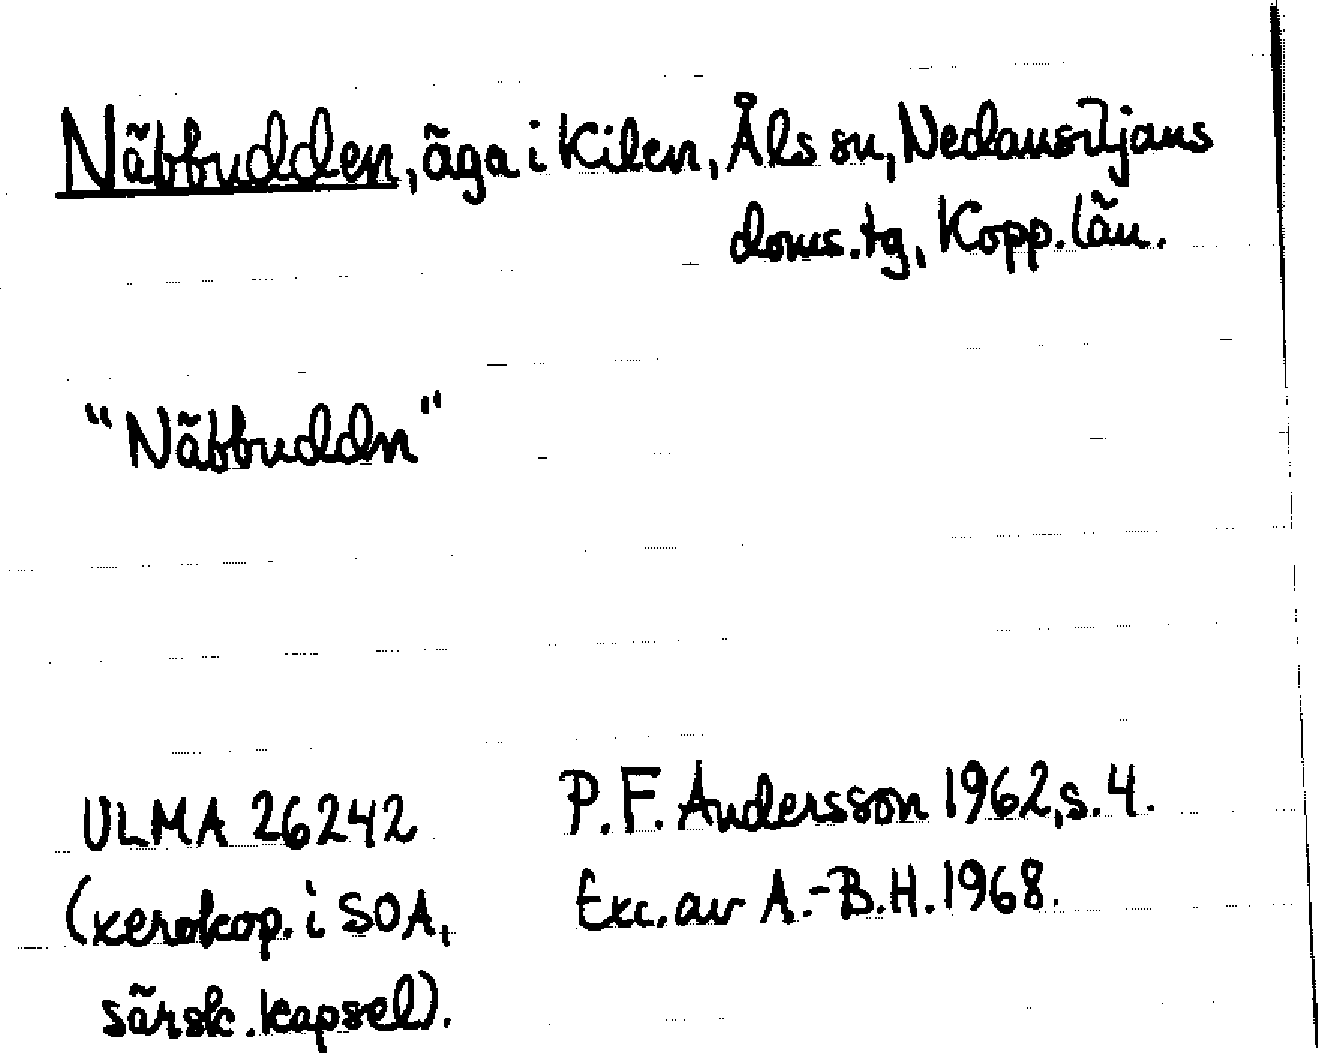 Näbbudden, äga i Kilen, Åls sn, Nedansiljans
doms.tg, Kopp. län.
"Näbbuddn"
ULMA 26242
(xerokop. i SOA,
särsk. kapsel).
P. F. Andersson 1962, s. 4.
Exc. av A.-B.H. 1968.